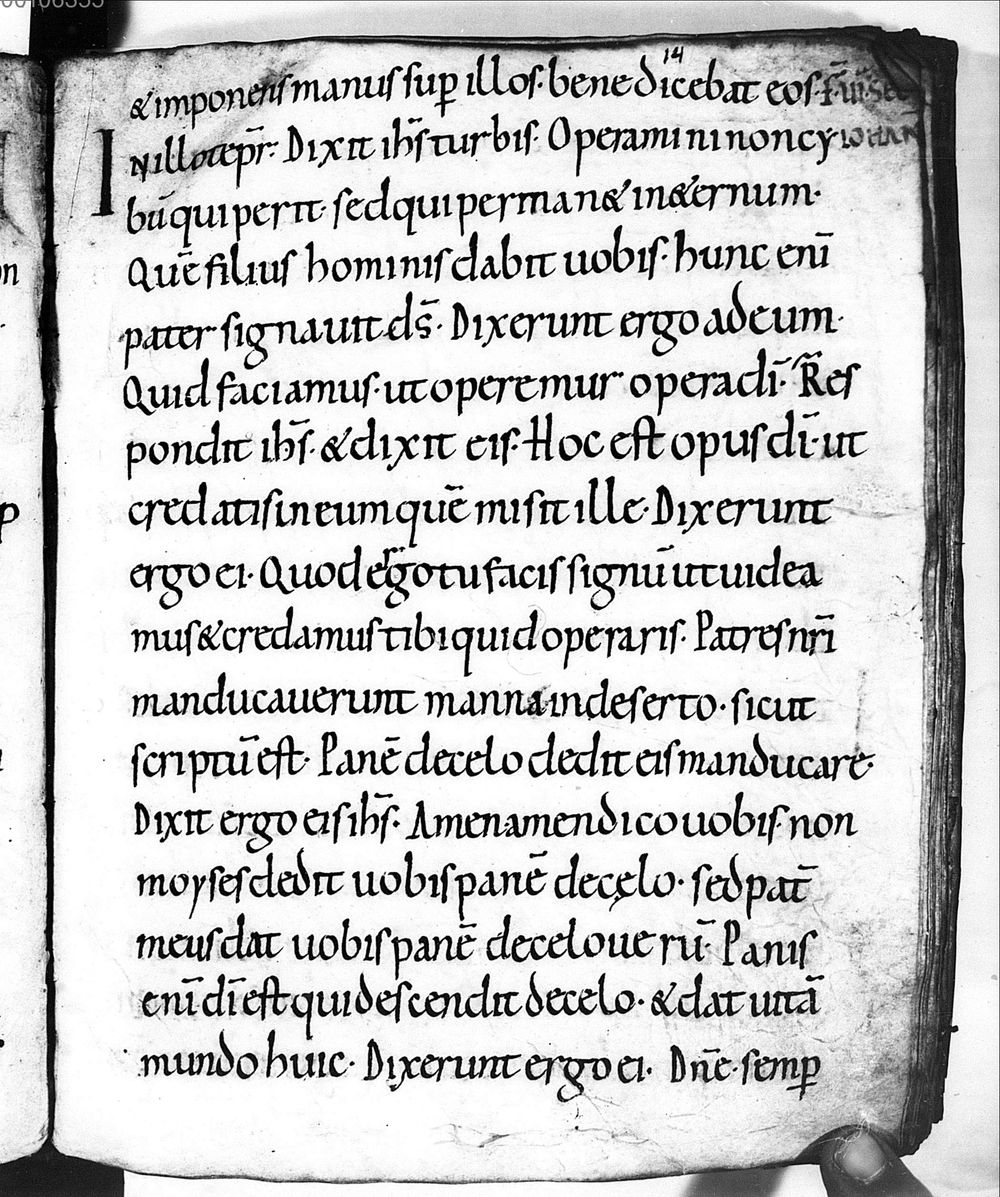 00106355
14
& imponens manus sup̄ illos· benedicebat eos· f̄r ui· Sec
IN illo tēpr̄· Dixit ihs̄ turbis· Operamini non cy IOHAN
bū qui perit· sed qui perman& in &ernum·
Quē filius hominis dabit uobis· hunc eni̅
pater signauit ds̄· Dixerunt ergo ad eum·
Quid faciamus· ut operemur opera di̅· R̄es
pondit ihs̄· & dixit eis· Hoc est opus di̅· ut
credatis in eum quē misit ille· Dixerunt
ergo ei· Quod ergo tu facis signū ut uidea
mus & credamus tibi quid operaris· Patres nr̄i
manducauerunt manna in deserto· sicut
scriptū est· Panē de celo dedit eis manducare·
Dixit ergo eis ihs̄· Amen amen dico uobis· non
moyses dedit uobis panē de cęlo· sed pat̄
meus dat uobis panē de celo uerū· Panis
eni̅ di̅ est qui descendit de celo· & dat uitā
mundo huic· Dixerunt ergo ei· Dn̄e· semp̄